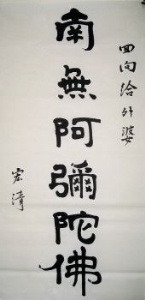 回向給外婆
南無阿彌陀佛
宏清